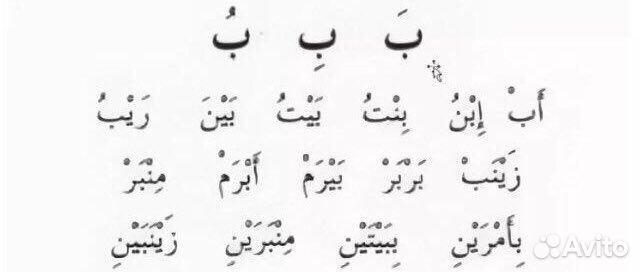 بَ بِ بُ
أَبْ إِبْنُ بِنْتُ بَيْتُ بَيْنَ رَيْبُ
زَيْنَبْ بَرْبَرْ بَيْرَمْ أَبْرَمْ مِنْبَرْ
بِأَمْرَيْنِ بِبَيْتَيْنِ مِنْبَرَيْنِ زَيْنَبَيْنِ
Avito